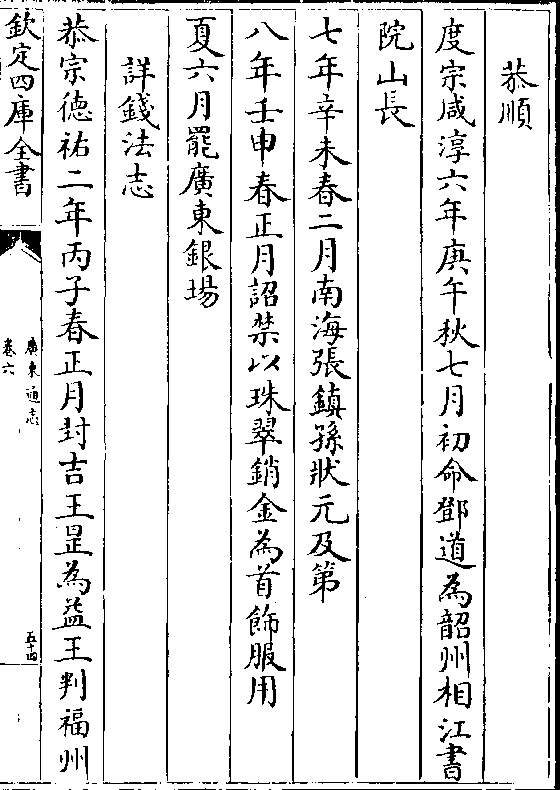 恭順
度宗咸淳六年庚午秋七月初命鄧道為韶州相江書
院山長
七年辛未春二月南海張鎮孫狀元及第
八年壬申春正月詔禁以珠翠銷金為首飾服用
夏六月罷廣東銀場
詳錢法志
恭宗德祐二年丙子春正月封吉王昰為益王判福州
欽定四庫全書
廣東通志
卷六
五十四